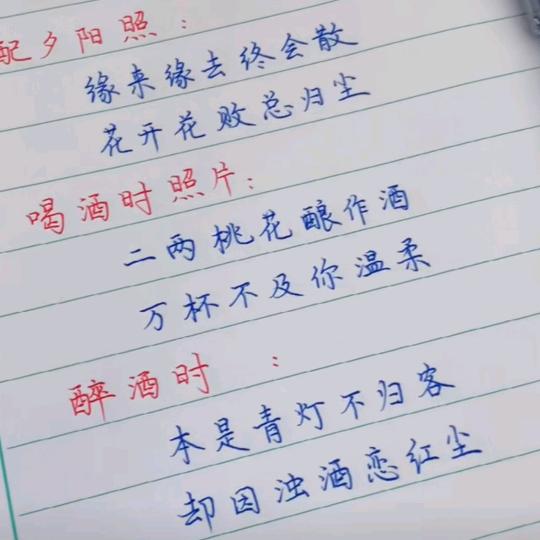 配夕阳照：
缘来缘去终会散
花开花败总归尘
喝酒时照片：
二两桃花酿作酒
万杯不及你温柔
醉酒时：
本是青灯不归客
却因浊酒恋红尘